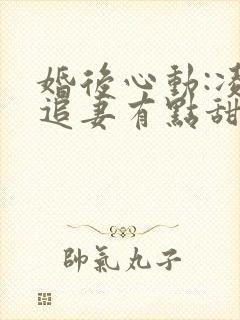 婚後心動:凌
追妻有點甜
帥氣丸子